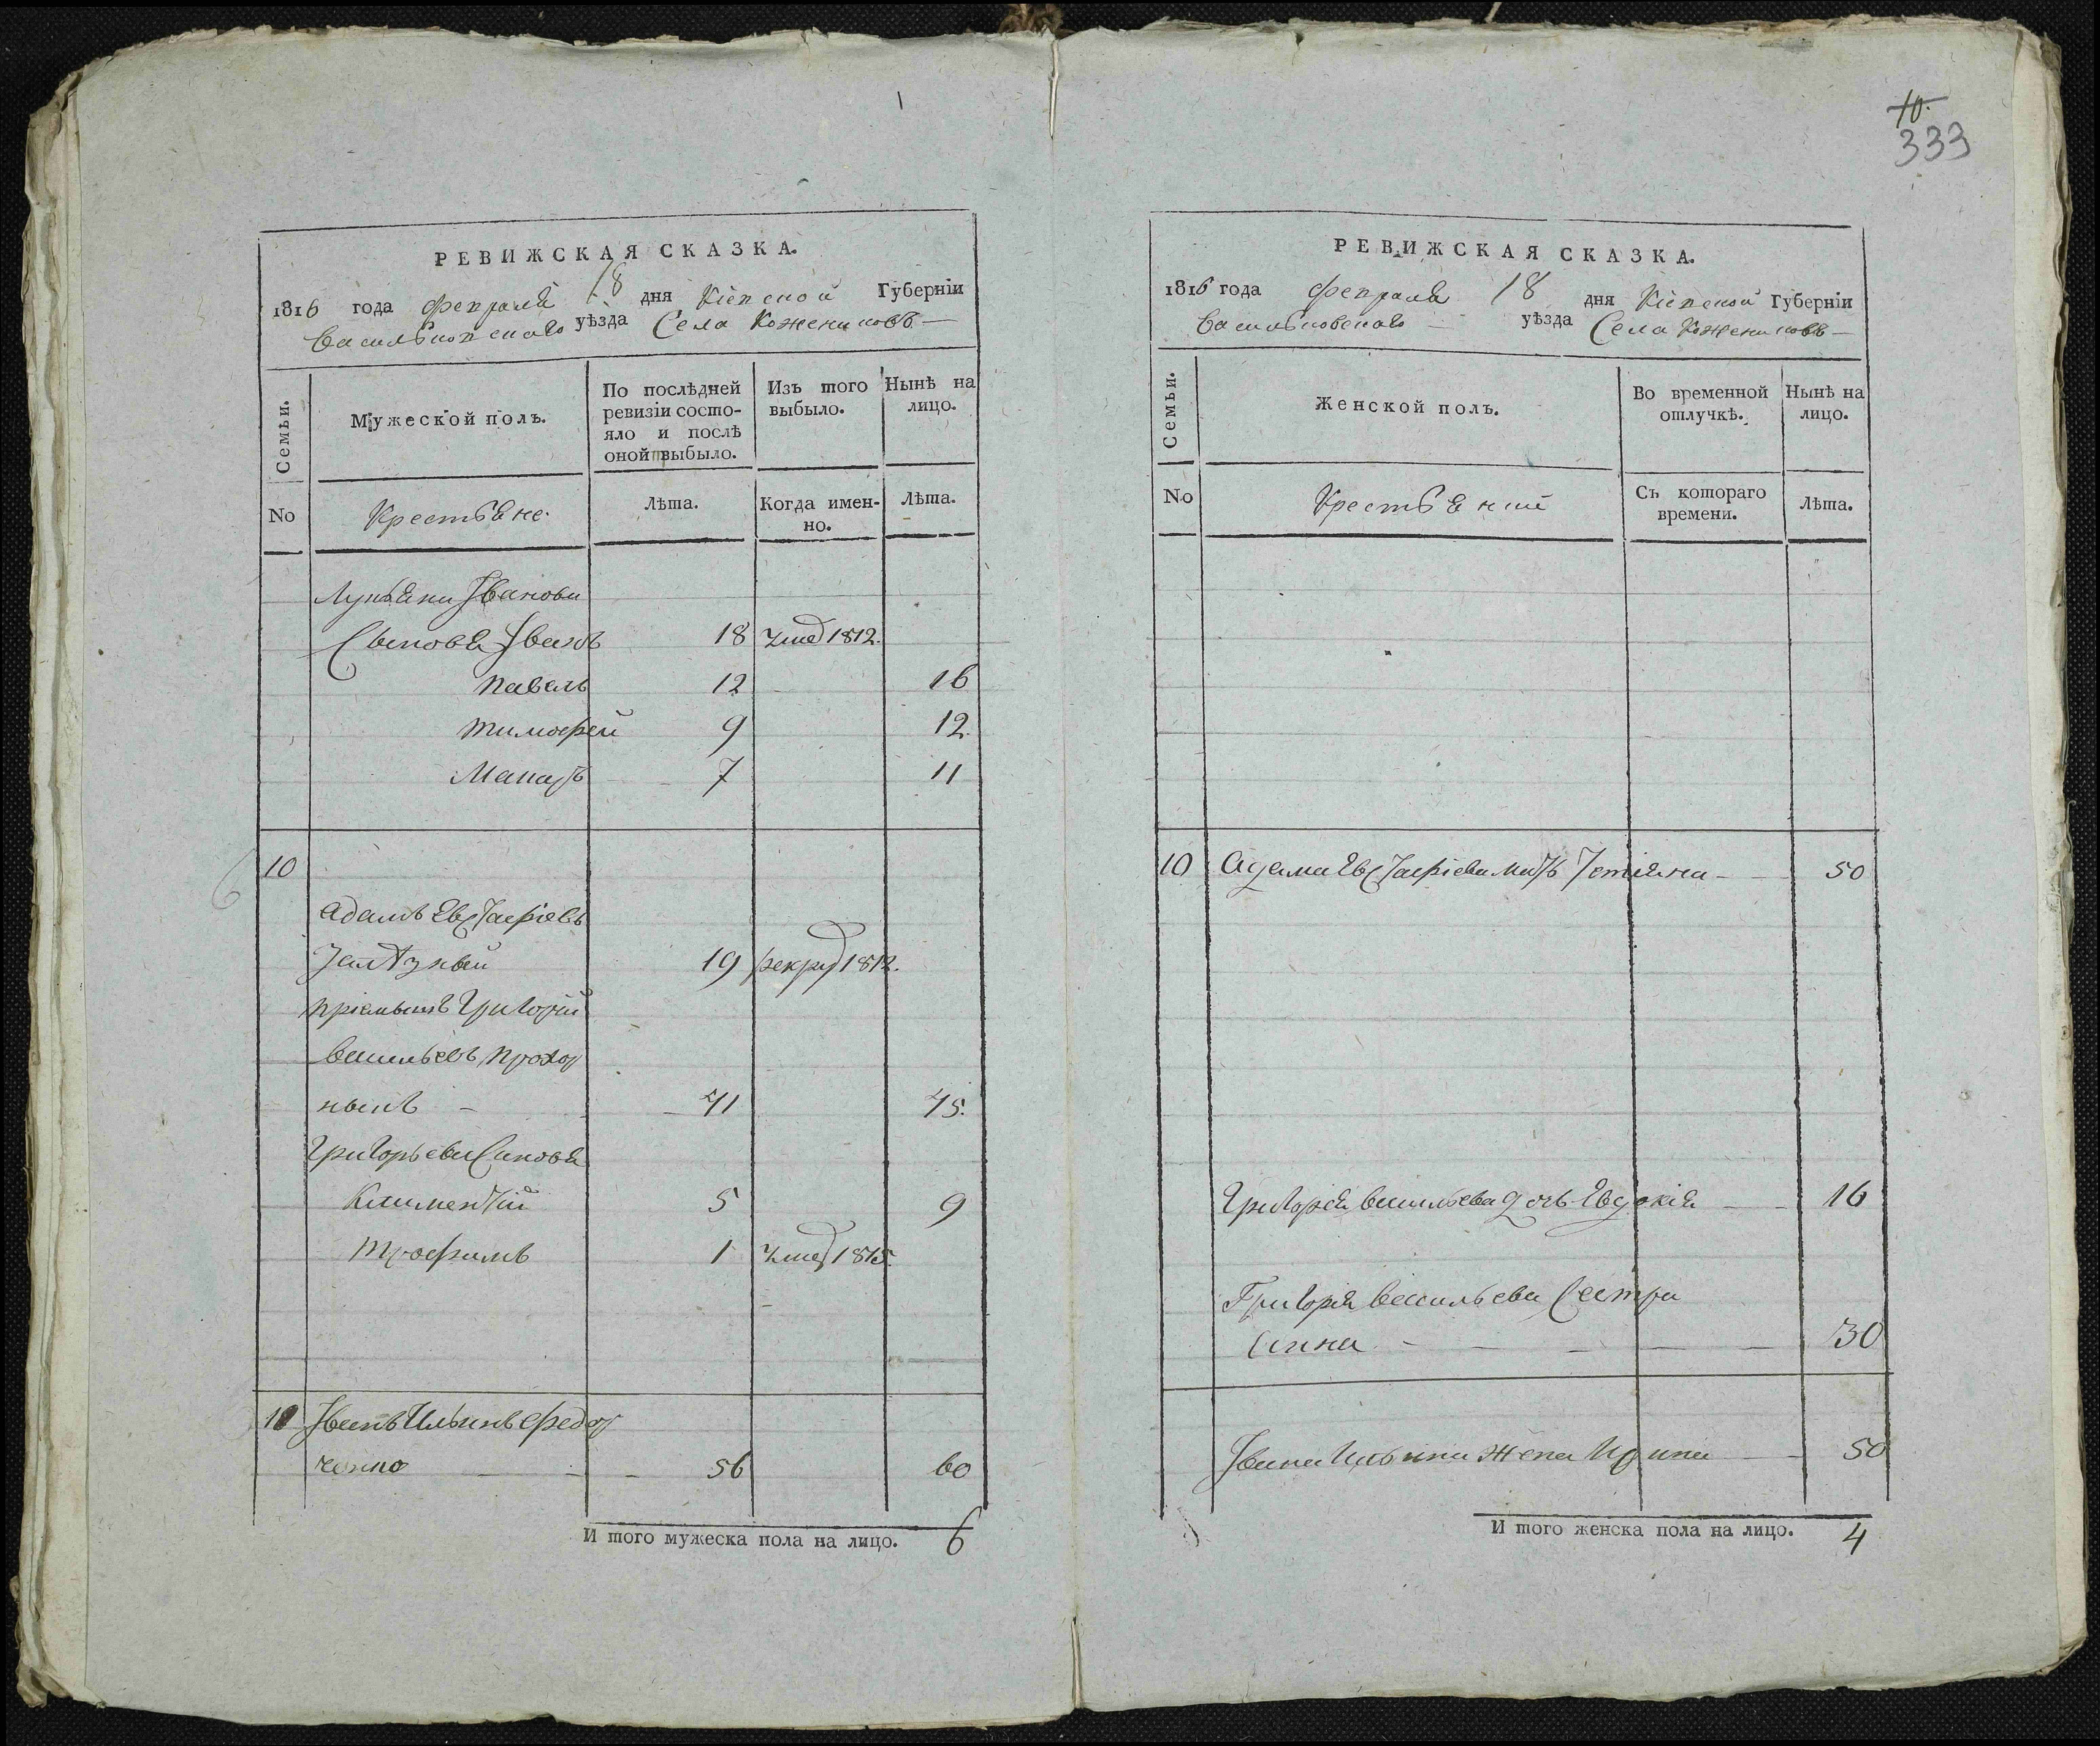 10.
333
РЕВИЖСКАЯ СКАЗКА.
1816 года февраля 18 дня Кіевской Губерніи
Васильковскаго уѣзда Села Кожениковъ
Семьи.
Мужеской полъ.
По послѣдней ревизіи состояло и послѣ оной выбыло.
Изъ того выбыло.
Нынѣ на лицо.
No
Крестьяне
Лѣта.
Когда именно.
Лѣта.
Лукьяна Иванова
Сыновья Иванъ 18 умеръ 1812.
Павелъ 12 16
Тимофей 9 12
Макаръ 7 11
10
Адамъ Евстафіевъ
19 рекрут 1812.
пріемышъ Григорій
Васильевъ Прохор
41 45.
Григорьева Синовья
Климентій 5 9
Трофимъ 1 умер 1815.
11 Иванъ Ильинъ Федор
ченко 56 60
И того мужеска пола на лицо. 6
РЕВИЖСКАЯ СКАЗКА.
1816 года февраля 18 дня Кіевской Губерніи
Васильковскаго уѣзда Села Кожениковъ
Семьи.
Женской полъ.
Во временной отлучкѣ.
Нынѣ на лицо.
No
Крестьянки
Съ котораго времени.
Лѣта.
10 Адама Евстафіева мать Устіяна 50
Григорія Васильева дочь Евдокія 16
Григорія Васильева Сестра
Анна 30
Ивана Ильина жена Ирина 50
И того женска пола на лицо. 4